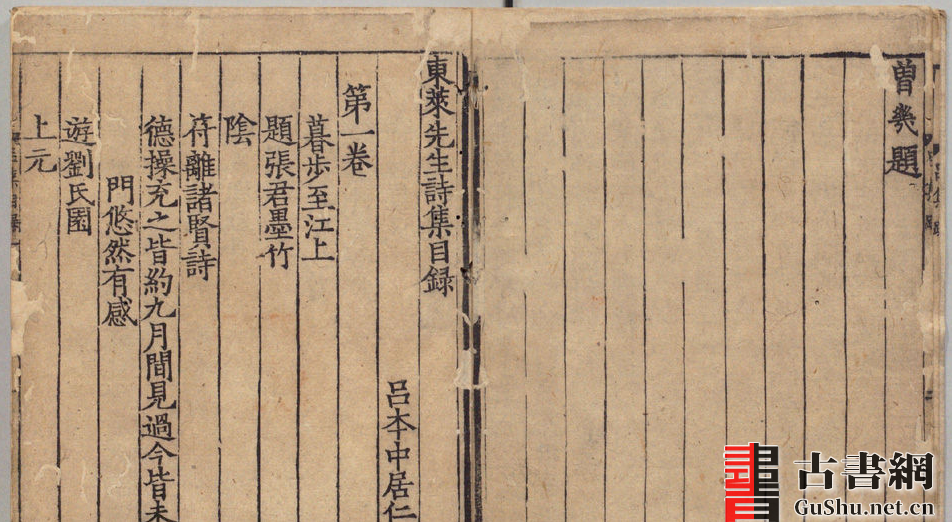 曾幾題
東萊先生詩集目録
吕本中居仁
第一卷
暮歩至江上
題張君墨竹
陰
符離諸賢詩
德操充之皆約九月間見過今皆未
門悠然有感
遊劉氏園
上元
古書網
GuShu.net.cn